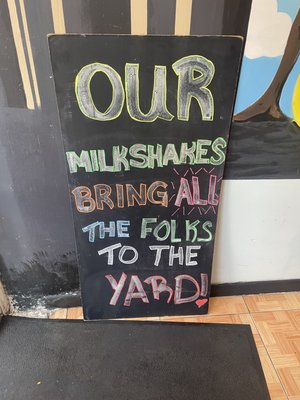 OUR
MILKSHAKES
BRING ALL
THE FOLKS
TO THE
YARD!